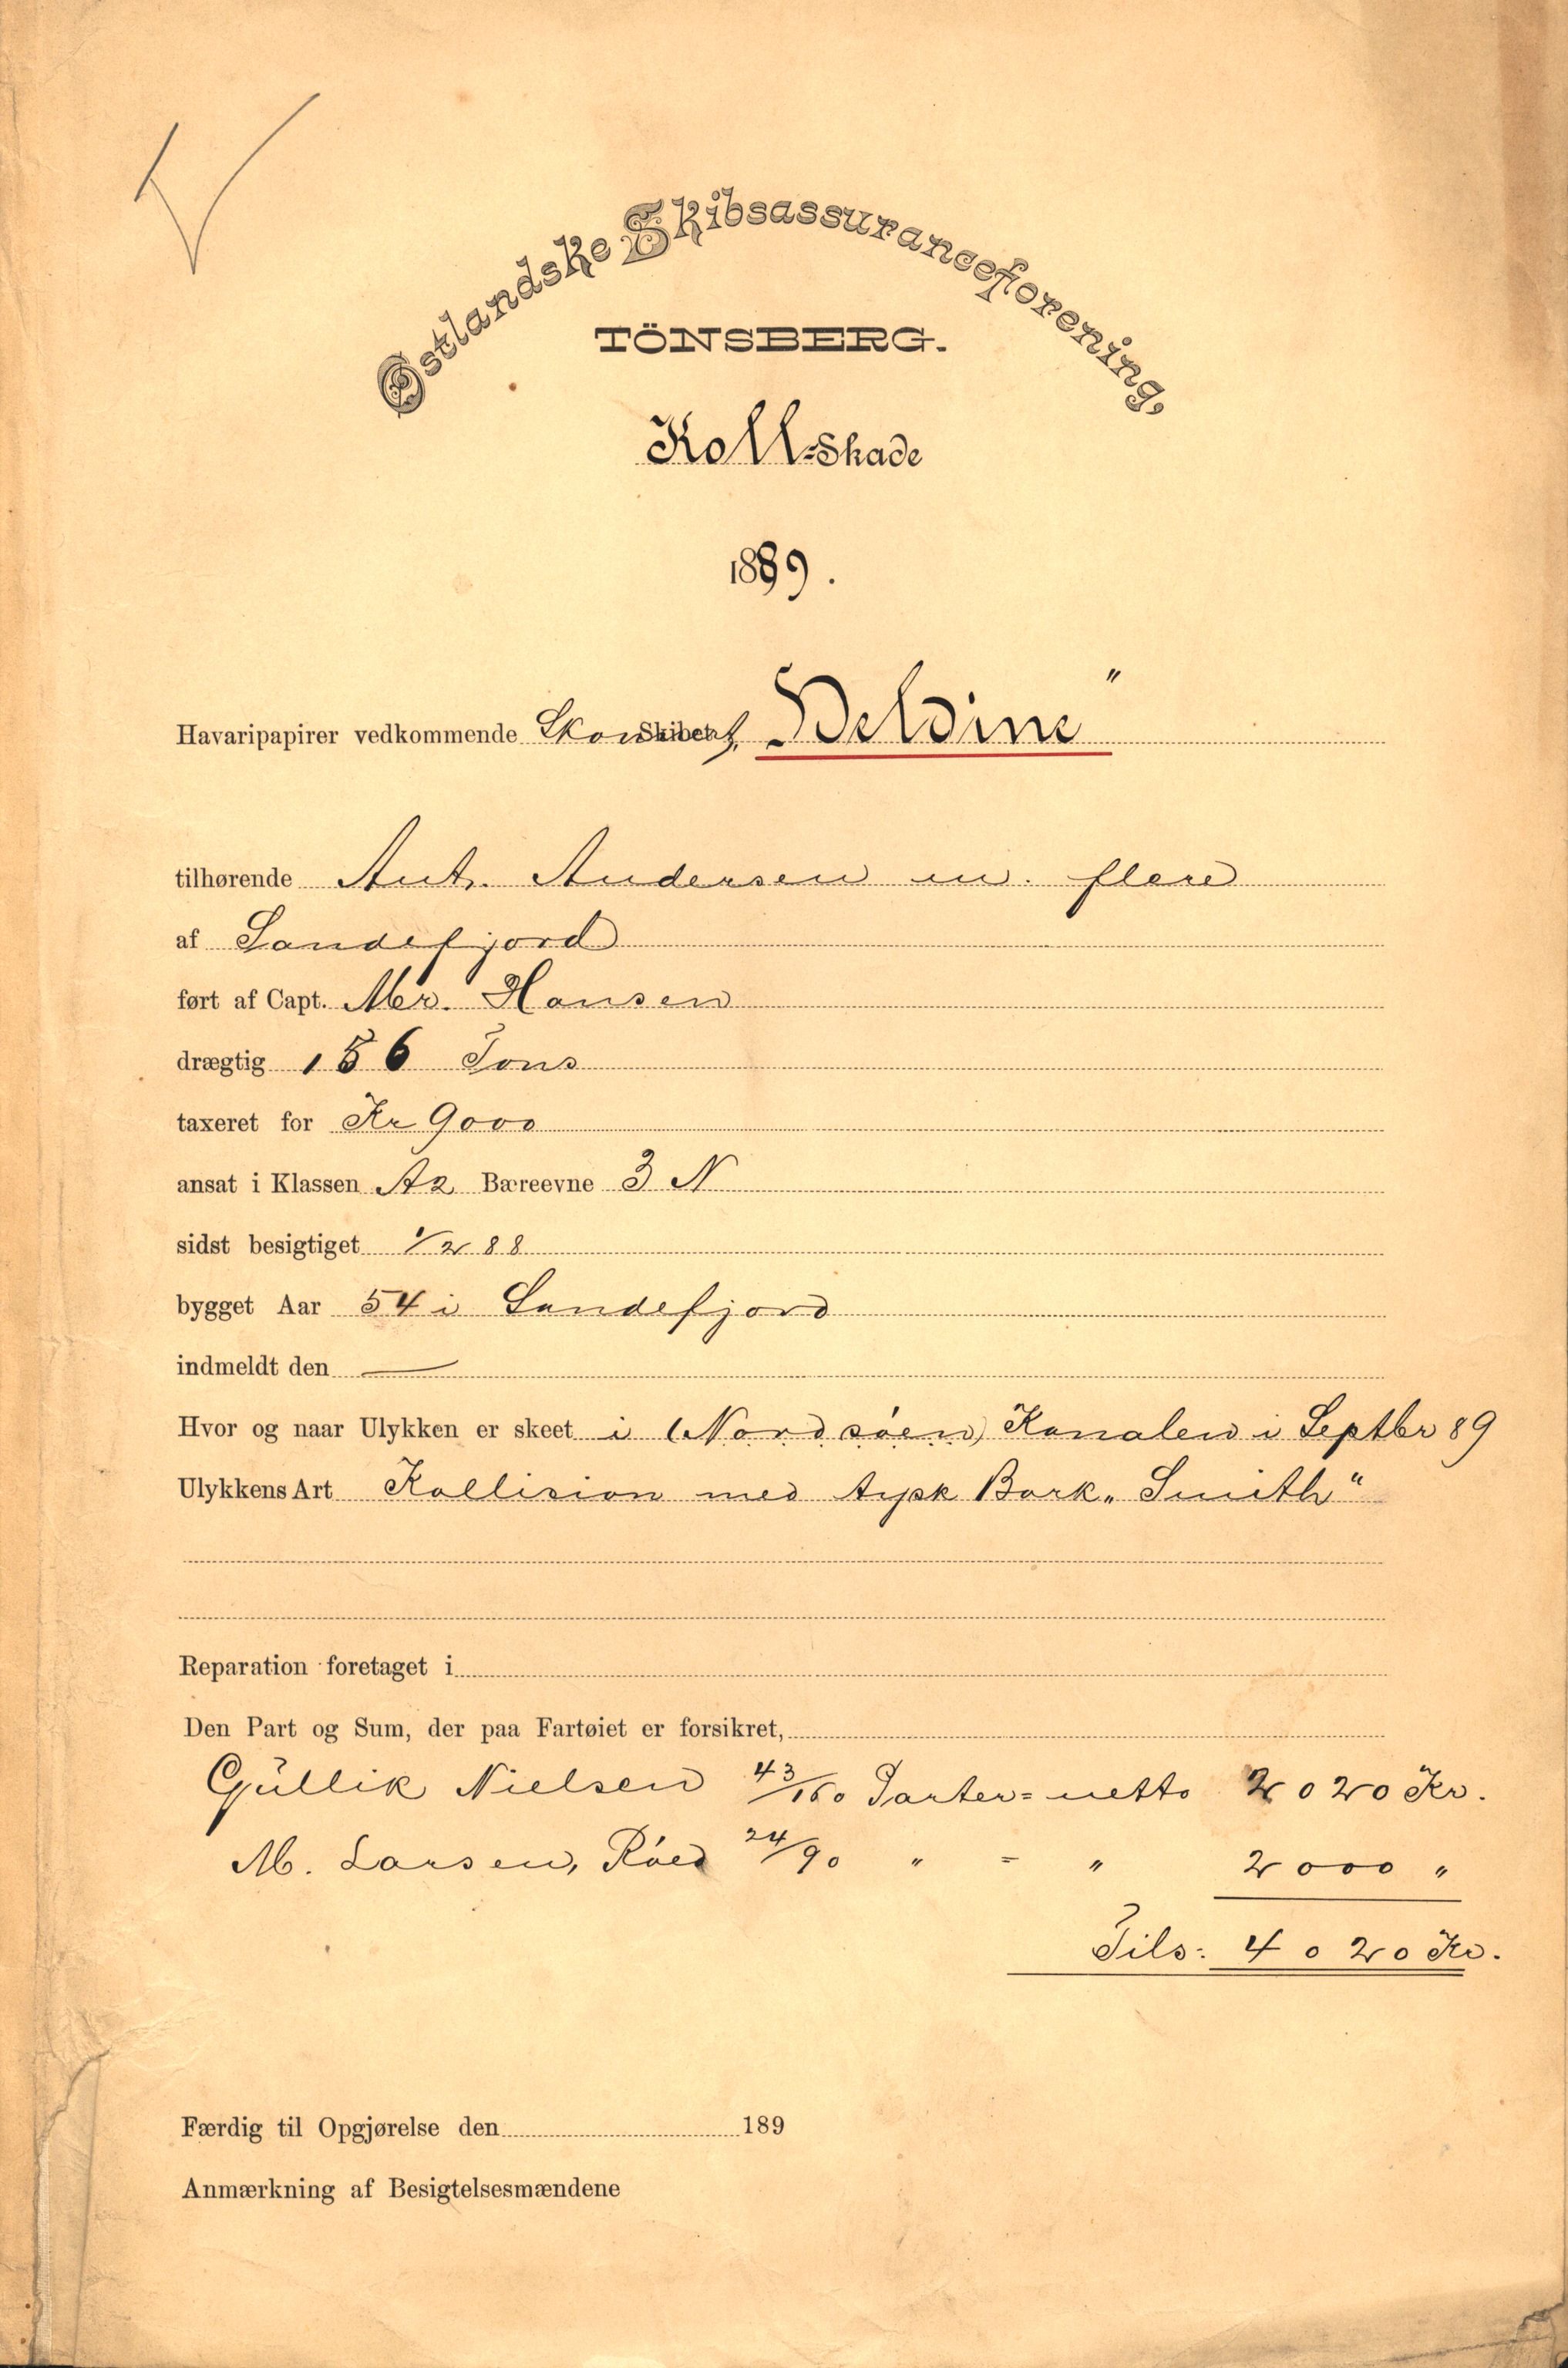 Østlandske Skibsassuranceforening,
TÖNSBERG.
Koll-Skade
1889.
Havaripapirer vedkommende Skonnert, „Deldine"
tilhørende Ant. Andersen m. flere
af Sandefjord
ført af Capt. Mr. Hansen
drægtig 156 Tons
taxeret for Kr 9000
ansat i Klassen A2 Bæreevne 3 N
sidst besigtiget 1/2 88
bygget Aar 54 i Sandefjord
indmeldt den —
Hvor og naar Ulykken er skeet i (Nordsøen) Kanalen i Septbr 89
Ulykkens Art Kollision med tysk Bark „Smith"
Reparation foretaget i
Den Part og Sum, der paa Fartøiet er forsikret,
Gullik Nielsen 43/160 Parter = netto 2020 Kr.
M. Larsen, Røed 24/90 " = " 2000 "
Tils: 4020 Kr.
Færdig til Opgjørelse den 189
Anmærkning af Besigtelsesmændene